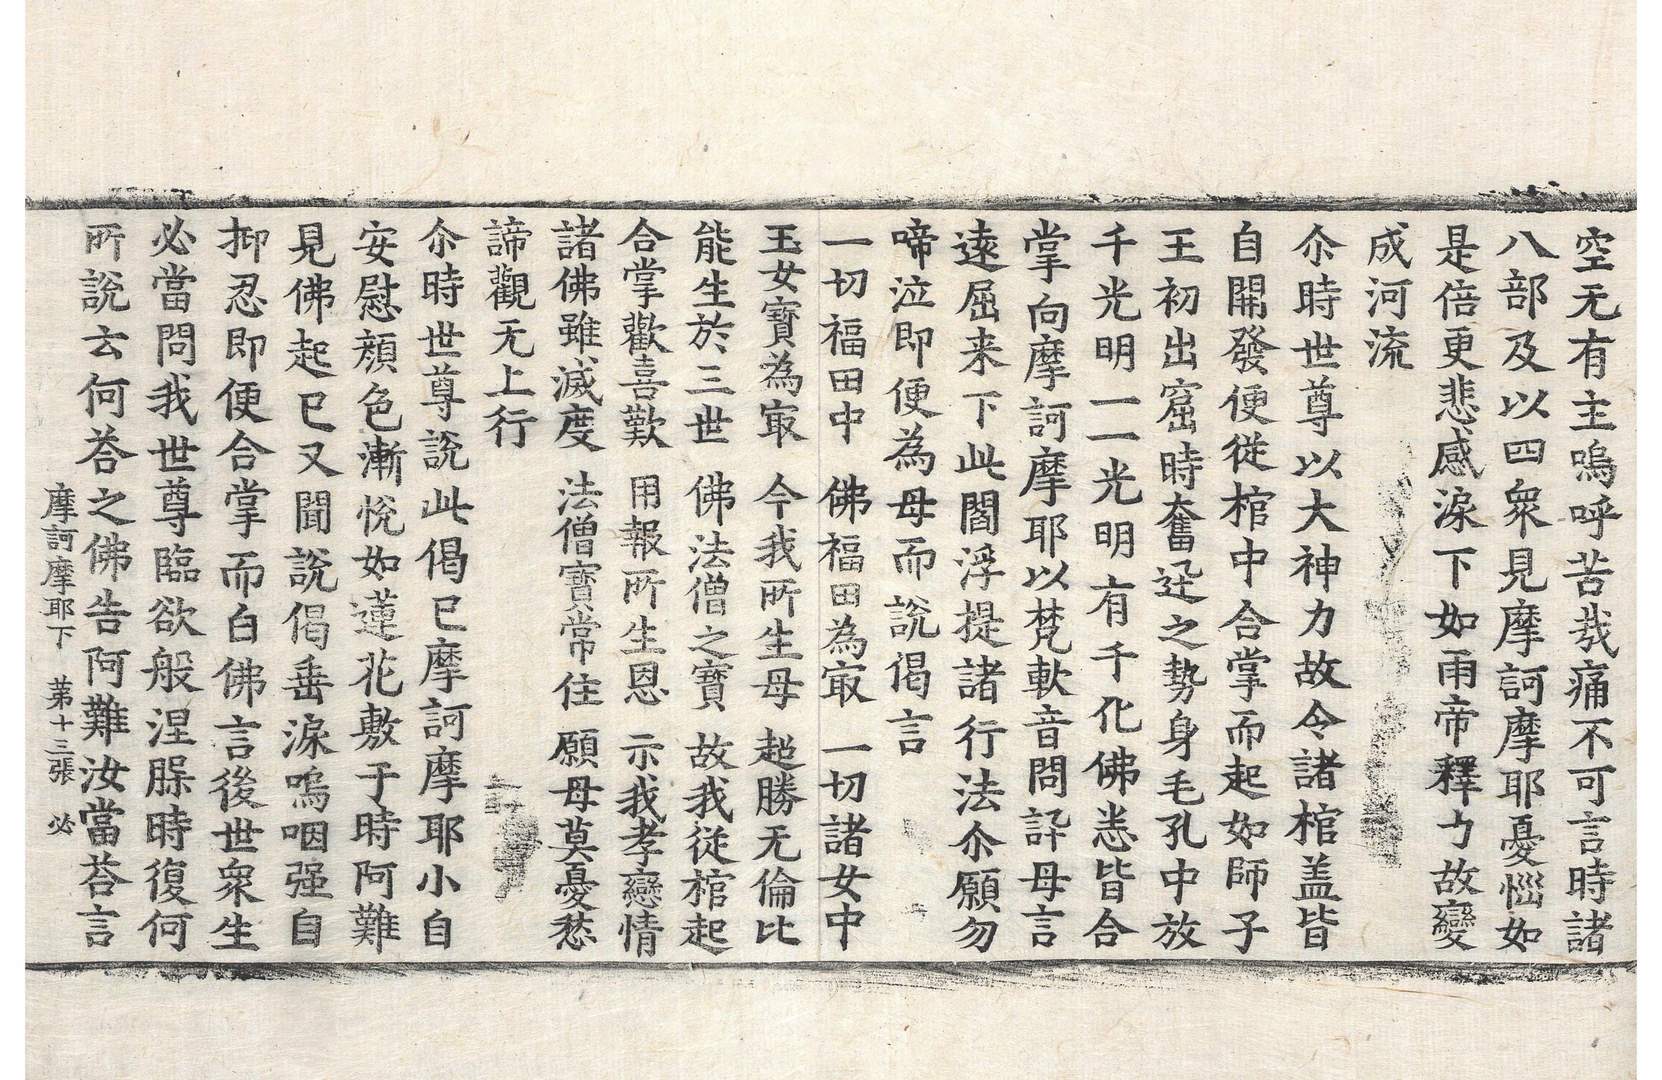 空无有主嗚呼苦㢤痛不可言時諸
八部及以四衆見摩訶摩耶憂惱如
是倍更悲感淚下如雨帝釋力故變
成河流
尒時世尊以大神力故令諸棺盖皆
自開發便從棺中合掌而起如師子
王初出窟時奮迅之勢身毛孔中放
千光明一一光明有千化佛悉皆合
掌向摩訶摩耶以梵軟音問訊母言
遠屈来下此閻浮提諸行法尒願勿
啼泣即便為母而說偈言
一切福田中　佛福田為㝡　一切諸女中
玉女寶為㝡　今我所生母　超勝无倫比
能生於三世　佛法僧之寶　故我從棺起
合掌歡喜歎　用報所生恩　示我孝戀情
諸佛雖滅度　法僧寶常住　願母莫憂愁
諦觀无上行
尒時世尊說此偈已摩訶摩耶小自
安慰顔色漸悅如蓮花敷于時阿難
見佛起已又聞說偈垂淚嗚咽强自
抑忍即便合掌而白佛言後世衆生
必當問我世尊臨欲般涅槃時復何
所說云何荅之佛告阿難汝當荅言
摩訶摩耶下　苐十三張　必